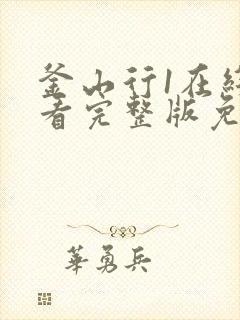 釜山行1在線
看完整版免
華勇兵